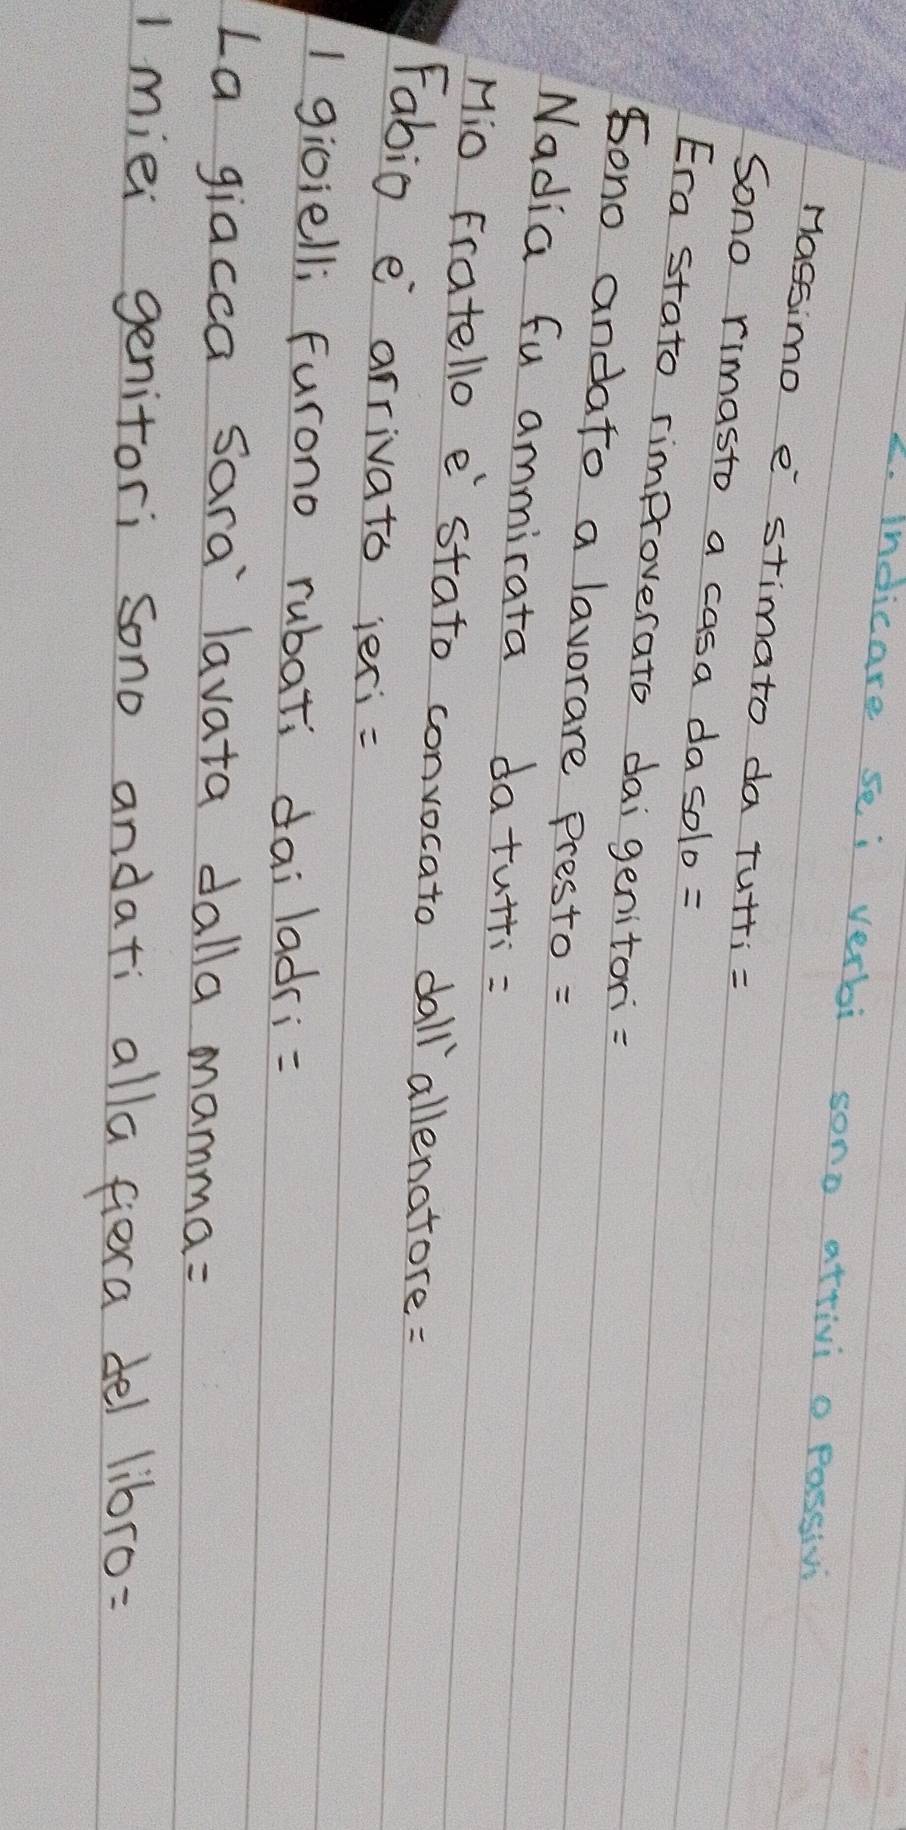 2. Indicare se i verbi sono attivi o passivi
Massimo è stimato da tutti =
Sono rimasto a casa da solo =
Era stato rimproverato dai genitori =
Sono andato a lavorare presto =
Nadia fu ammirata da tutti =
Mio fratello è stato convocato dall'allenatore =
Fabio è arrivato ieri =
I gioielli furono rubati dai ladri =
La giacca sarà lavata dalla mamma =
I miei genitori sono andati alla fiera del libro =